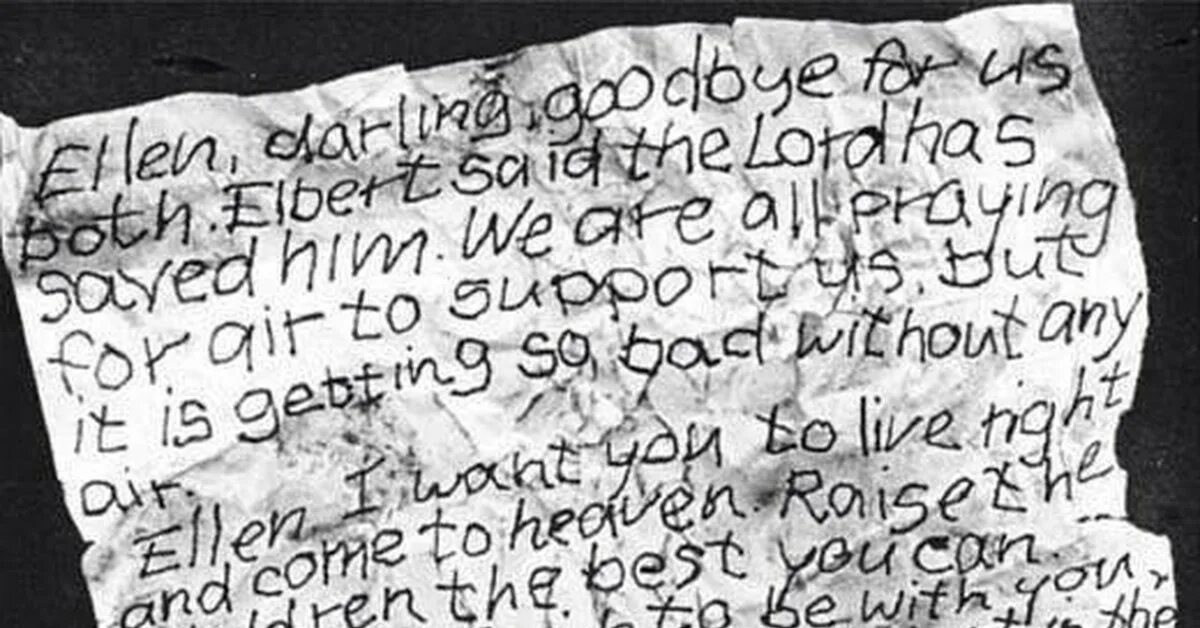 Ellen, darling, goodbye for us
both. Elbert said the Lord has
saved him. We are all praying
for air to support us. but
it is getting so bad without any
air.
Ellen I want you to live right
and come to heaven. Raise the
children the best you can.
to be with you,
the